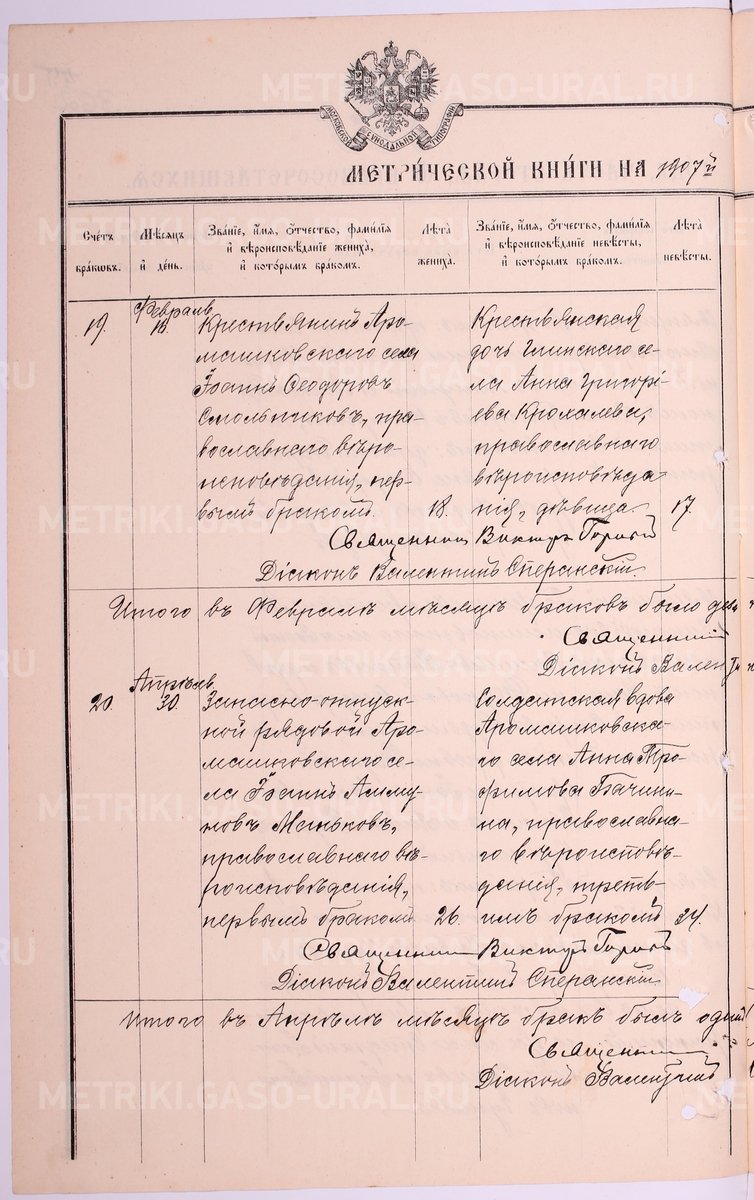 МОСКОВСКОЙ СѴНОДАЛЬНОЙ ТИПОГРАФІИ
МЕТРИ́ЧЕСКОЙ КНИ́ГИ НА 1907й
Сче́тъ бра́кωвъ.
Мѣ́сяцъ и҆ де́нь.
Зва́нїе, и҆́мя, ѻ҆́тчество, фамѝлїя и҆ вѣроисповѣ́данїе жениха̀, и҆ кото́рымъ бра́комъ.
Лѣ́та жениха̀.
Зва́нїе, и҆́мя, ѻ҆́тчество, фамѝлїя и҆ вѣроисповѣ́данїе невѣ́сты, и҆ кото́рымъ бра́комъ.
Лѣ́та невѣ́сты.
19.
Февраль
18.
Крестьянинъ Аро-
машковскаго села
Іоаннъ Ѳеодоровъ
Смольниковъ, пра-
вославнаго вѣро-
исповѣданія, пер-
вымъ бракомъ.
18.
Крестьянская
дочь Глинскаго се-
ла Анна Григорі-
ева Крохалева,
православнаго
вѣроисповѣда
нія, дѣвица.
17.
Священник Викторъ Горный
Діаконъ Валентинъ Сперанскій.
Итого въ Февралѣ мѣсяцѣ браковъ было девя
Священник
Діаконъ Вален
20.
Апрѣль
30.
Запасно-отпуск-
ной рядовой Аро-
машковскаго се-
ла Іоаннъ
новъ Маньковъ,
православнаго вѣ-
роисповѣданія,
первымъ бракомъ
26.
Солдатская вдова
Аромашковска-
го села Анна Тро-
фимова Бачини-
на, православна-
го вѣроисповѣ-
данія, треть-
имъ бракомъ
34.
Священник Викторъ
Діаконъ Валентинъ Сперанскій
Итого въ Апрѣлѣ мѣсяцѣ бракъ былъ один
Священник
Діаконъ Валентин
METRIKI.GASO-URAL.RU